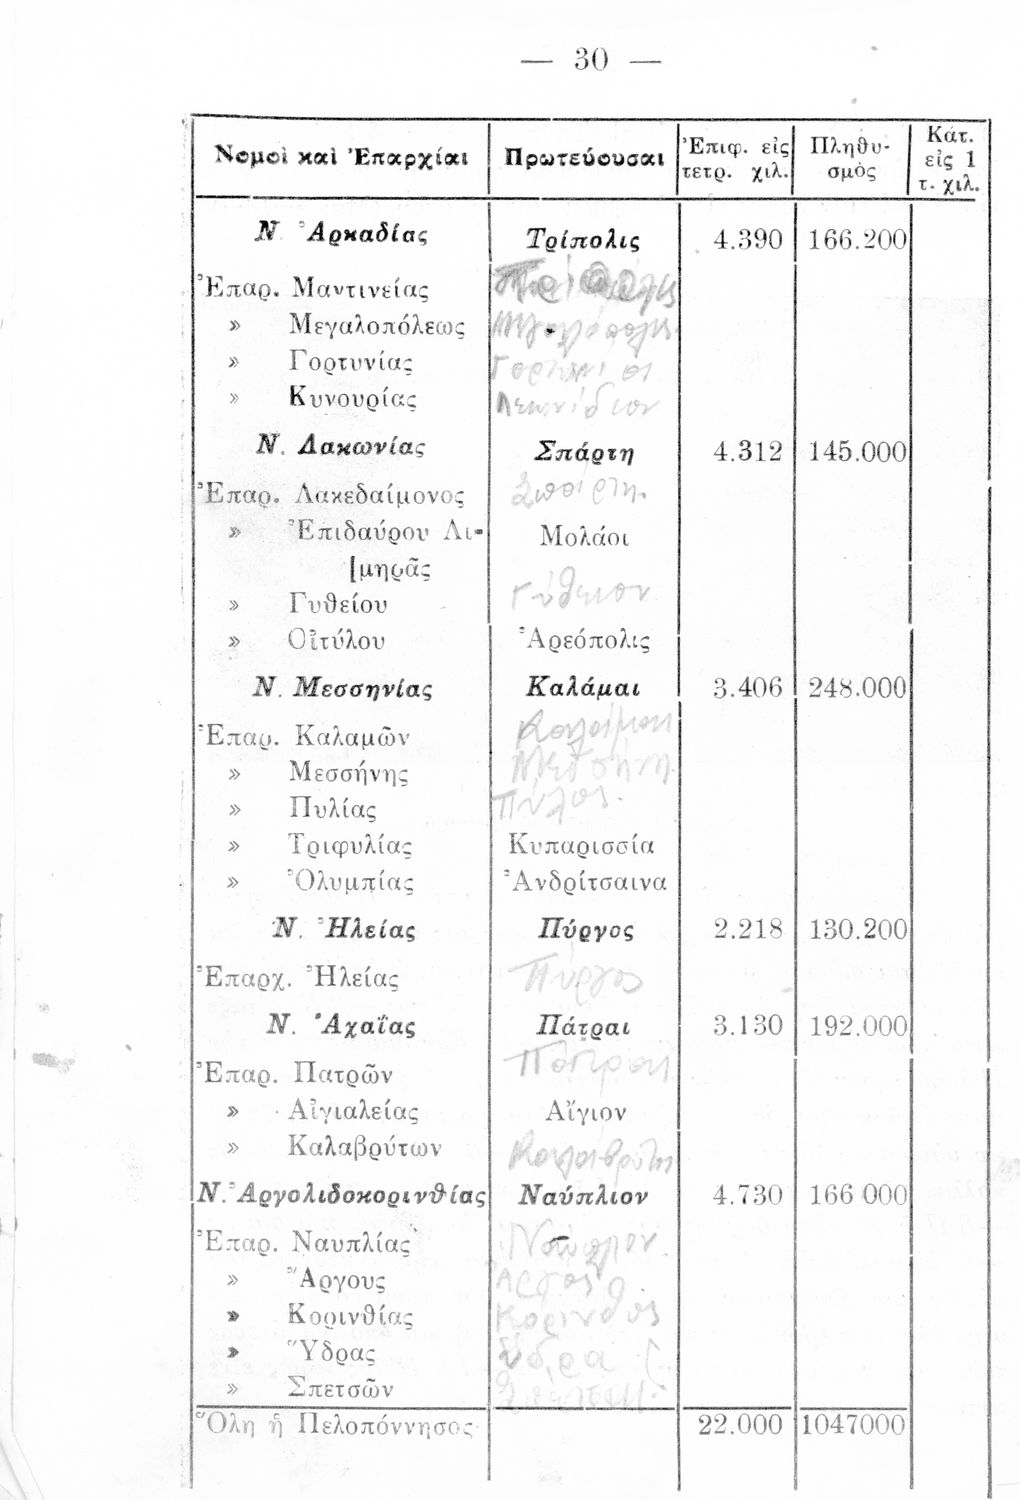 — 30 —
Νομοὶ καὶ Ἐπαρχίαι Πρωτεύουσαι Ἐπιφ. εἰς τετρ. χιλ. Πληθυσμὸς Κάτ. εἰς 1 τ. χιλ.
Ν. Ἀρκαδίας Τρίπολις 4.390 166.200
Ἐπαρ. Μαντινείας
» Μεγαλοπόλεως Μεγαλόπολις
» Γορτυνίας
» Κυνουρίας Λεωνίδιον
Ν. Λακωνίας Σπάρτη 4.312 145.000
Ἐπαρ. Λακεδαίμονος Σπάρτη.
» Ἐπιδαύρου Λι- Μολάοι
[μηρᾶς
» Γυθείου Γύθειον
» Οἰτύλου Ἀρεόπολις
Ν. Μεσσηνίας Καλάμαι 3.406 248.000
Ἐπαρ. Καλαμῶν Καλάμαι
» Μεσσήνης Μεσσήνη
» Πυλίας Πύλος.
» Τριφυλίας Κυπαρισσία
» Ὀλυμπίας Ἀνδρίτσαινα
Ν. Ἠλείας Πύργος 2.218 130.200
Ἐπαρχ. Ἠλείας Πύργος
Ν. Ἀχαΐας Πάτραι 3.130 192.000
Ἐπαρ. Πατρῶν Πάτραι
» Αἰγιαλείας Αἴγιον
» Καλαβρύτων
Ν. Ἀργολιδοκορινθίας Ναύπλιον 4.730 166 000
Ἐπαρ. Ναυπλίας Ναύπλιον.
» Ἄργους Άργος
» Κορινθίας Κόρινθος
» Ὕδρας Ύδρα
» Σπετσῶν
Ὅλη ἡ Πελοπόννησος 22.000 1047000